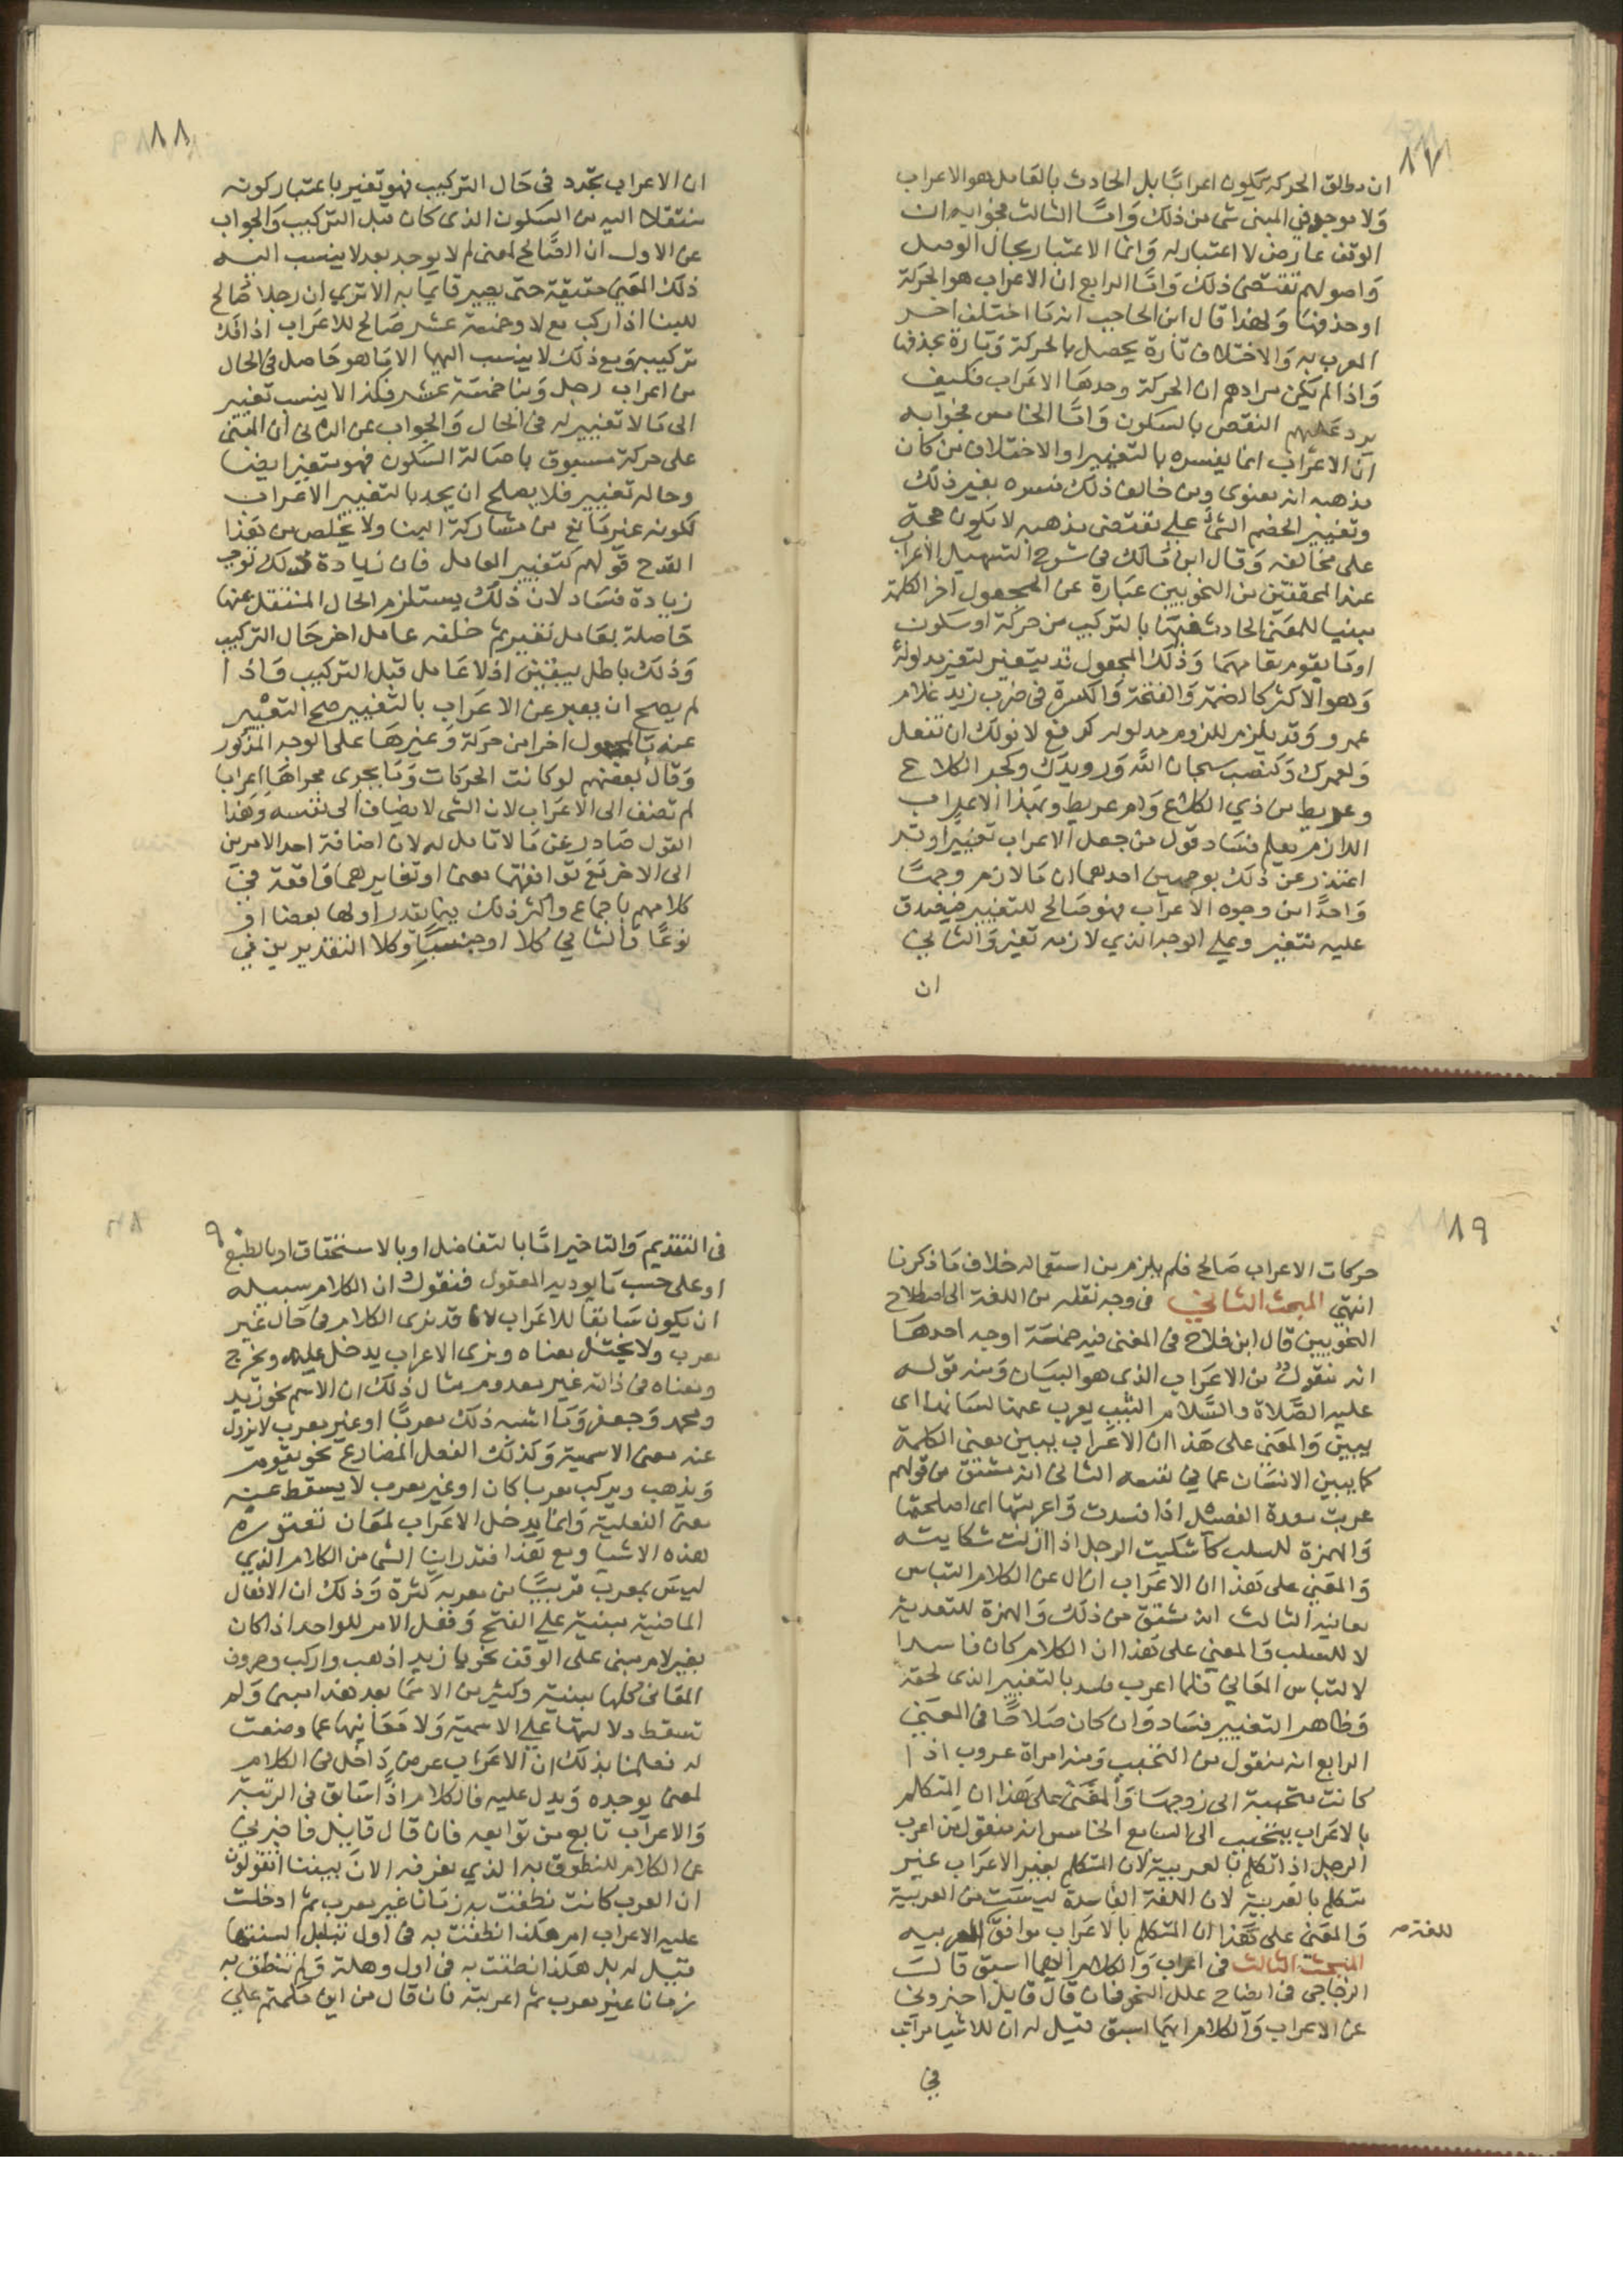 ١٧
ان مطلق الحركة يكون اعرابًا بل الحادث بالعامل هو الاعراب
ولا يوجد في المبنى شى من ذلك وامّا الثالث فجوابه ان
الوقف عارض لا اعتبار له وانما الاعتبار بحال الوصل
واصولهم تقتضى ذلك وامّا الرابع ان الاعراب هو الحركة
او حذفها ولهذا قال ابن الحاجب انه ما اختلف اخر
المعرب به والاختلاف تارة يحصل بالحركة وتارة بحذفها
واذا لم يكن مرادهم ان الحركة وحدها الاعراب فكيف
يرد عليهم النقض بالسكون وامّا الخامس فجوابه
ان الاعراب انما يفسره بالتغيير او الاختلاف من كان
مذهبه انه معنوى ومن خالف ذلك فسره بغير ذلك
وتغيير الخصم الشئ على مقتضى مذهبه لا يكون حجة
على مخالفه وقال ابن مالك فى شرح التسهيل الاعراب
عند المحققين من النحويين عبارة عن المجعول اخر الكلمة
مبينا للمعنى الحادث فيها بالتركيب من حركة او سكون
او ما يقوم مقامهما وذلك المجعول قد يتغير لتغير مدلوله
وهو الاكثر كالضمة والفتحة والكسرة فى ضرب زيد غلام
عمرو وقد يلزم للزوم مدلوله كرفع لا نولك ان تفعل
ولعمرك وكنصب سبحان الله ورويدك وكجر الكلاع
وعريط من ذي الكلاع وام عريط وبهذا الاعراب
اللازم يعلم فساد قول من جعل الاعراب تغييرا وقد
اعتذر عن ذلك بوجهين احدهما ان ما لازم وجهًا
واحدًا من وجوه الاعراب فهو صالح للتغيير فيصدق
عليه متغير وعلى الوجه الذي لازمه تغير والثاني
ان
١٨
ان الاعراب تجدد فى حال التركيب فهو تغير باعتبار كونه
منتقلا اليه من السكون الذى كان قبل التركيب والجواب
عن الاول ان الصالح لمعنى لم لا يوجد بعد لا ينسب اليه
ذلك المعنى حقيقة حتى يصير قايما به الا تري ان رجلا صالح
للبنا اذا ركب مع لا وخمسة عشر صالح للاعراب اذا فك
تركيبه ومع ذلك لا ينسب اليهما الا ما هو حاصل فى الحال
من اعراب رجل وبنا خمسة عشر فكذا لا ينسب تغيير
الى ما لا تغيير له فى الحال والجواب عن الثانى ان المبنى
على حركة مسبوق باصالة السكون فهو متغير ايضا
وحاله تغيير فلا يصلح ان يحد بالتغيير الاعراب
لكونه غير مانع من مشاركة البنا ولا يخلص من هذا
القدح قولهم كتغيير العامل فان زيادة ذلك توجب
زيادة فساد لان ذلك يستلزم الحال المنتقل عنها
حاصلة بعامل تغير ثم خلفه عامل اخر حال التركيب
وذلك باطل بيقين اذ لا عامل قبل التركيب واذا
لم يصح ان يعبر عن الاعراب بالتغيير صح التعبير
عنه بالمجعول اخرا من حركة وغيرها على الوجه المذكور
وقال بعضهم لو كانت الحركات وما يجرى مجراها اعراب
لم تضف الى الاعراب لان الشى لا يضاف الى نفسه وهذا
القول صادر عن ما لا تامل له لان اضافة احد الامرين
الى الاخر مع توافقهما معنا او تغايرهما واقعة في
كلامهم باجماع واكثر ذلك فيما يقدر اولها بعضا او
نوعًا والثاني كلا او جنسًا وكلا التقديرين في
١٩
حركات الاعراب صالح فلم يلزم من استعماله خلاف ما ذكرنا
انتهي المبحث الثاني فى وجه نقله من اللغة الى اصطلاح
النحويين قال ابن فلاح فى المغنى فيه خمسة اوجه احدها
انه منقول من الاعراب الذى هو البيان ومنه قوله
عليه الصلاة والسلام الثيب يعرب عنها لسانها اى
يبين والمعنى على هذا ان الاعراب يبين معنى الكلمة
كما يبين الانسان عما في نفسه الثانى انه مشتق من قولهم
عربت معدة الفصيل اذا فسدت واعربتها اى اصلحتها
والهمزة للسلب كاشكيت الرجل اذا ازلت شكايته
والمعنى على هذا ان الاعراب ازال عن الكلام التباس
معانيه الثالث انه مشتق من ذلك والهمزة للتعدية
لا للسلب والمعنى على هذا ان الكلام كان فاسدا
لالتباس المعاني فلما اعرب فسد بالتغيير الذى لحقه
وظاهر التغيير فساد وان كان صلاحًا فى المعنى
الرابع انه منقول من التحبب ومنه امراة عروب اذا
كانت متحببة الى زوجها والمعنى على هذا ان المتكلم
بالاعراب يتحبب الى السامع الخامس انه منقول من اعرب
الرجل اذا تكلم بالعربية لان المتكلم بغير الاعراب غير
متكلم بالعربية لان اللغة الفاسدة ليست من العربية
والمعنى على هذا ان المتكلم بالاعراب موافق للغة العربيه
المبحث الثالث فى اعراب والكلام ايهما اسبق قال
الزجاجى فى ايضاح علل النحو فان قال قايل اخبرونى
عن الاعراب والكلام ايهما اسبق قيل له ان للاشيا مراتب
في
٩
فى التقديم والتاخير امّا بالتفاضل او بالاستحقاق او بالطبع
او على حسب ما يوديه المعقول فنقول ان الكلام سبيله
ان يكون سابقا للاعراب لانا قد نرى الكلام فى حال غير
معرب ولا يختل معناه ونرى الاعراب يدخل عليه ويخرج
ومعناه فى ذاته غير معدوم مثال ذلك ان الاسم نحو زيد
ومحمد وجعفر وما اشبه ذلك معربًا او غير معرب لا يزول
عنه معنى الاسمية وكذلك الفعل المضارع نحو يقوم
ويذهب ويركب معربا كان او غير معرب لا يسقط عنه
معنى الفعلية وانما يدخل الاعراب لمعان تعتوره
هذه الاشيا ومع هذا فقد راينا الشى من الكلام الذي
ليس بمعرب قريبًا من معربه كثرة وذلك ان الافعال
الماضية مبنية على الفتح وفعل الامر للواحد اذا كان
بغير لام مبنى على الوقف نحو يا زيد اذهب واركب وحروف
المعانى كلها مبنية وكثير من الاسما بعد هذا مبنى ولم
تسقط دلالتها على الاسمية ولا معانيها عما وضعت
له فعلمنا بذلك ان الاعراب عرض داخل فى الكلام
لمعنى يوجده ويدل عليه فالكلام اذًا سابق فى الرتبة
والاعراب تابع من توابعه فان قال قايل فاخبرني
عن الكلام المنطوق به الذي نعرفه الان بيننا اتقولون
ان العرب كانت نطقت به زمانا غير معرب ثم ادخلت
عليه الاعراب ام هكذا نطقت به فى اول تبلبل السنتها
قيل له بل هكذا نطقت به فى اول وهلة ولم تنطق به
زمانا غير معرب ثم اعربته فان قال من اين حكمتم على